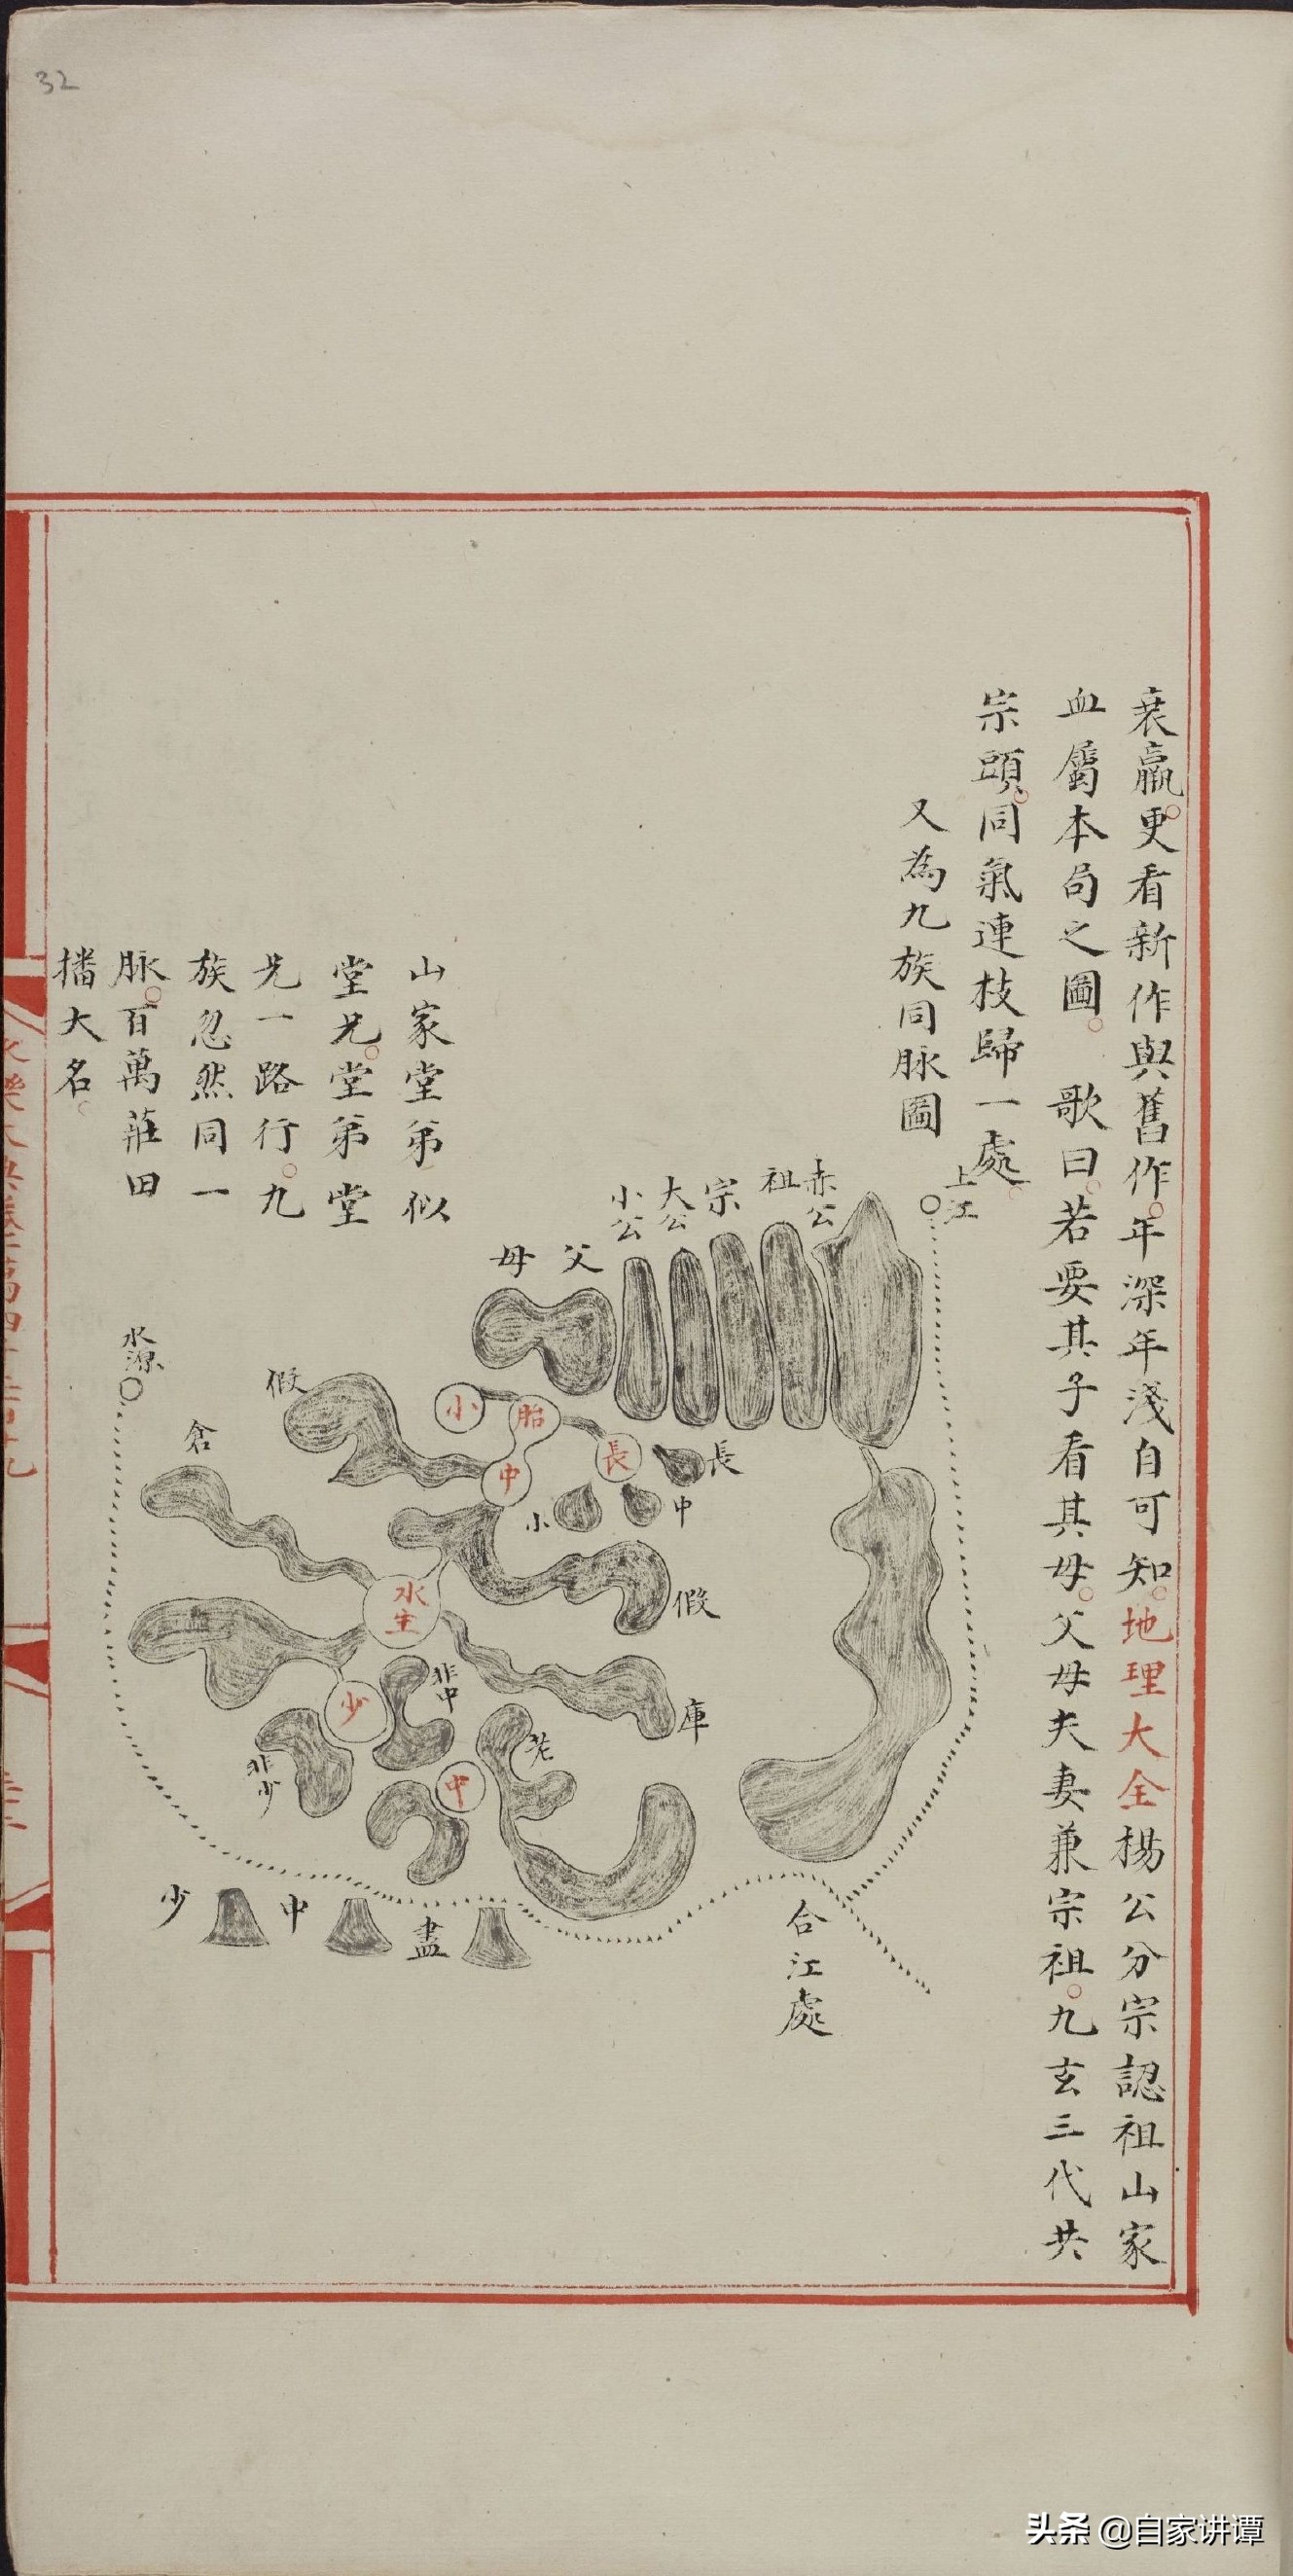 32
衰羸更看新作與舊作年深年淺自可知地理大全楊公分宗認祖山家
血屬本局之圖 歌曰若要其子看其母父母夫妻兼宗祖九玄三代共
宗頭同氣連枝歸一處
又為九族同脉圖
上江
赤公
祖
宗
大公
小公
父
母
山家堂弟似
堂兄堂弟堂
兄一路行九
族忽然同一
脉百萬莊田
播大名
水源
假
倉
小
胎
中
長
長
中
小
假
水生
庫
少
非中
非少
中
老
少
中
盡
合江處
头条 @自家讲谭